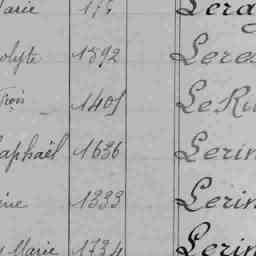 Marie 17
olyte 1892 Leres
1401 Le Ru
aphaël 1636 Lerin
ine 1333 Lerin
Marie 1734 Lerin